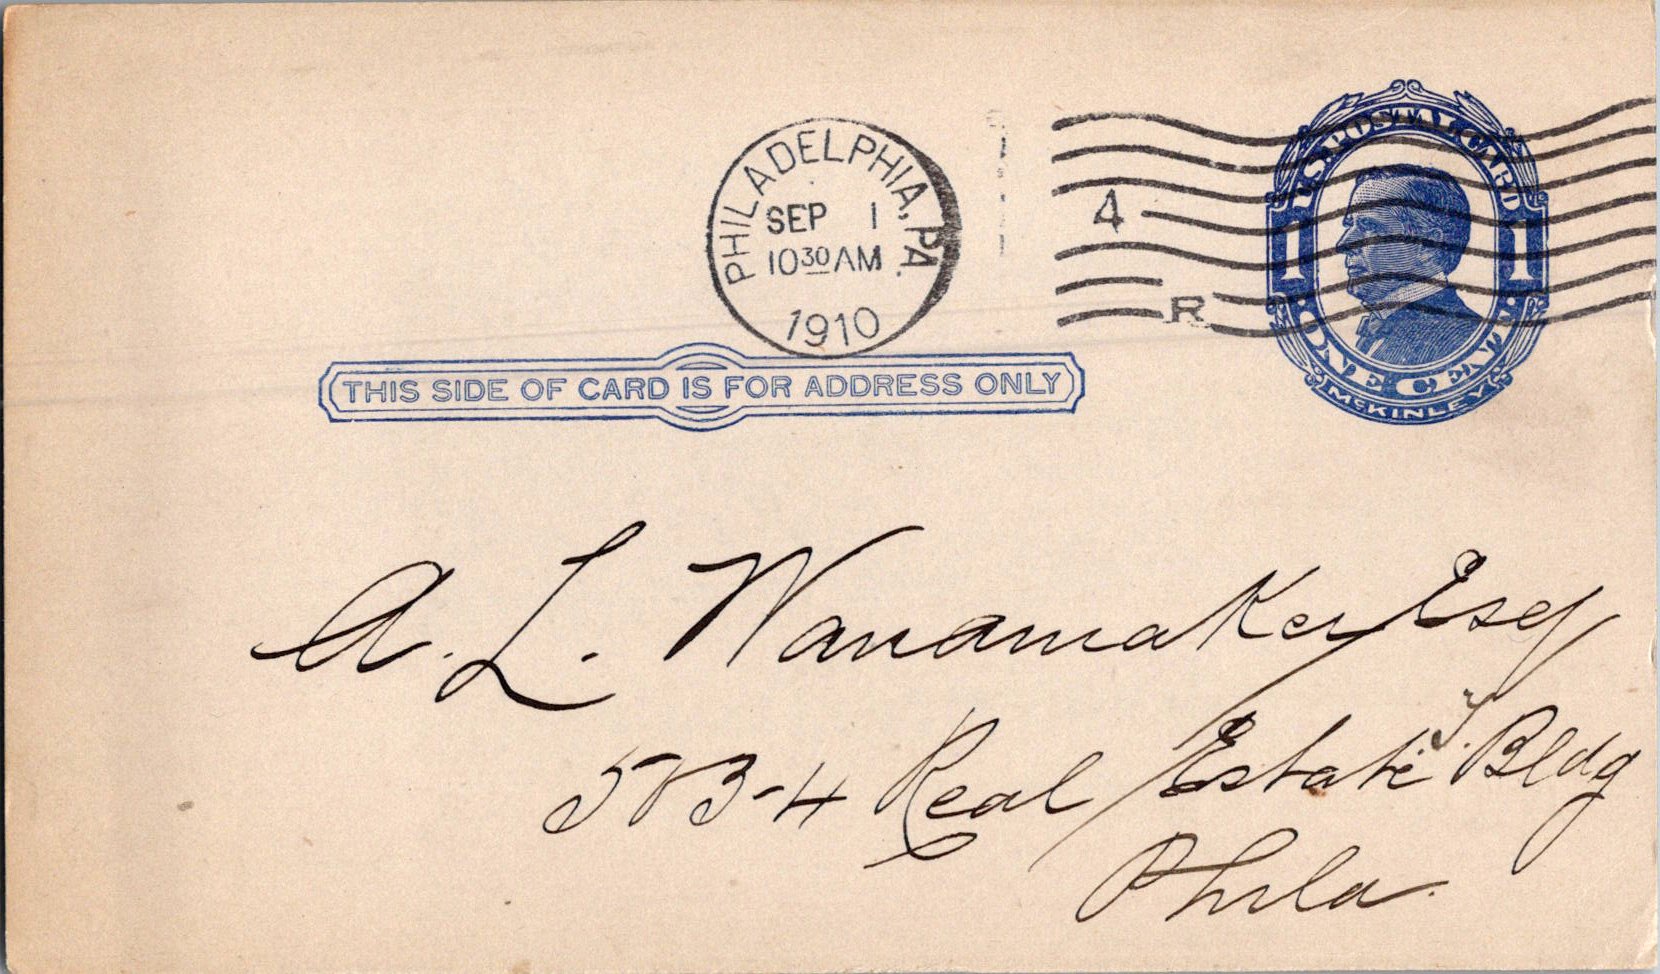 PHILADELPHIA, PA.
SEP 1
10 30 AM
1910
4
R
U.S. POSTAL CARD
1 1
· ONE CENT ·
McKINLEY
THIS SIDE OF CARD IS FOR ADDRESS ONLY
A. L. Wanamaker Esq
503-4 Real Estate T. Bldg
Phila.